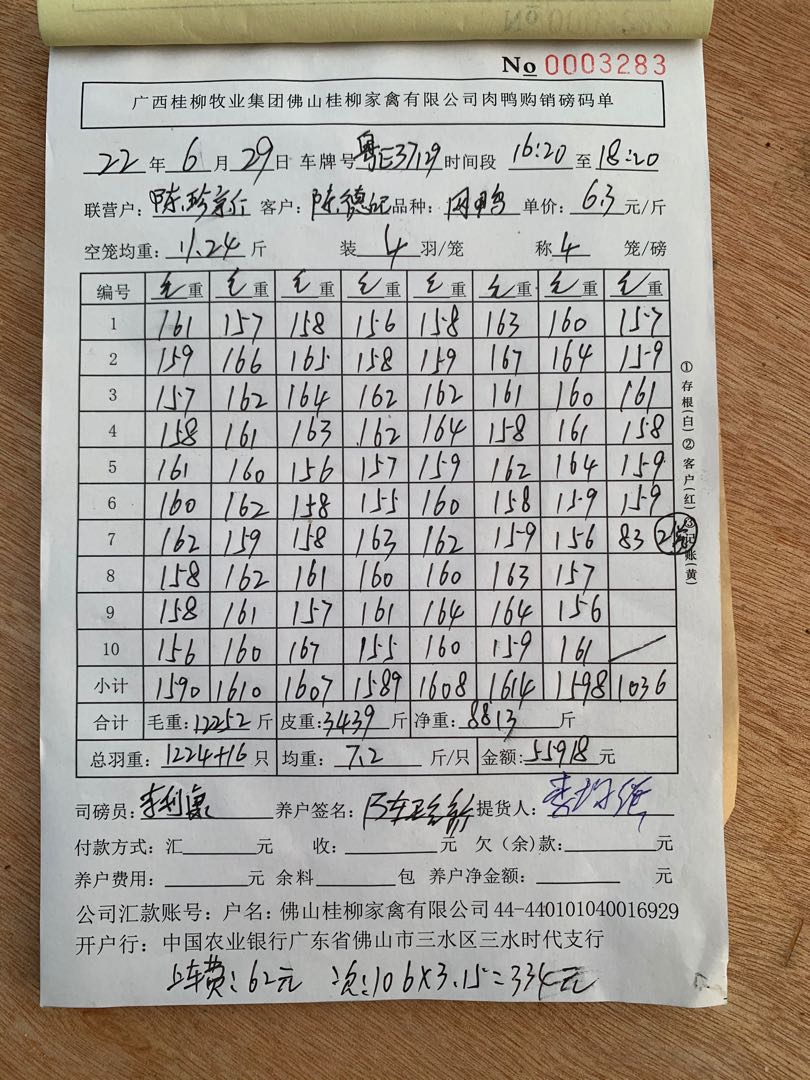 No 0003283
广西桂柳牧业集团佛山桂柳家禽有限公司肉鸭购销磅码单
22 年 6 月 29 日 车牌号 粤E37129 时间段 16:20 至 18:20
联营户: 客户: 陈德 品种: 肉鸭 单价: 6.3 元/斤
空笼均重: 11.24 斤 装 4 羽/笼 称 4 笼/磅
编号 毛重 毛重 毛重 毛重 毛重 毛重 毛重 毛重
1 161 157 158 156 158 163 160 157
2 159 166 165 158 159 167 164 159
3 157 162 164 162 162 161 160 161
4 158 161 163 162 164 158 161 158
5 161 160 156 157 159 162 164 159
6 160 162 158 155 160 158 159 159
7 162 159 158 163 162 159 156 83 2笼
8 158 162 161 160 160 163 157
9 158 161 157 161 164 164 156
10 156 160 167 155 160 159 161
小计 1590 1610 1607 1589 1608 1614 1598 1036
合计 毛重: 12252 斤 皮重: 3439 斤 净重: 8813 斤
总羽重: 1224+16 只 均重: 7.2 斤/只 金额: 55918 元
司磅员: 李利 养户签名: 提货人:
付款方式: 汇 元 收: 元 欠(余)款: 元
养户费用: 元 余料 包 养户净金额: 元
公司汇款账号: 户名: 佛山桂柳家禽有限公司 44-440101040016929
开户行: 中国农业银行广东省佛山市三水区三水时代支行
上车费: 62元 次: 106×3.15=334元
①存根(白)②客户(红)③记账(黄)